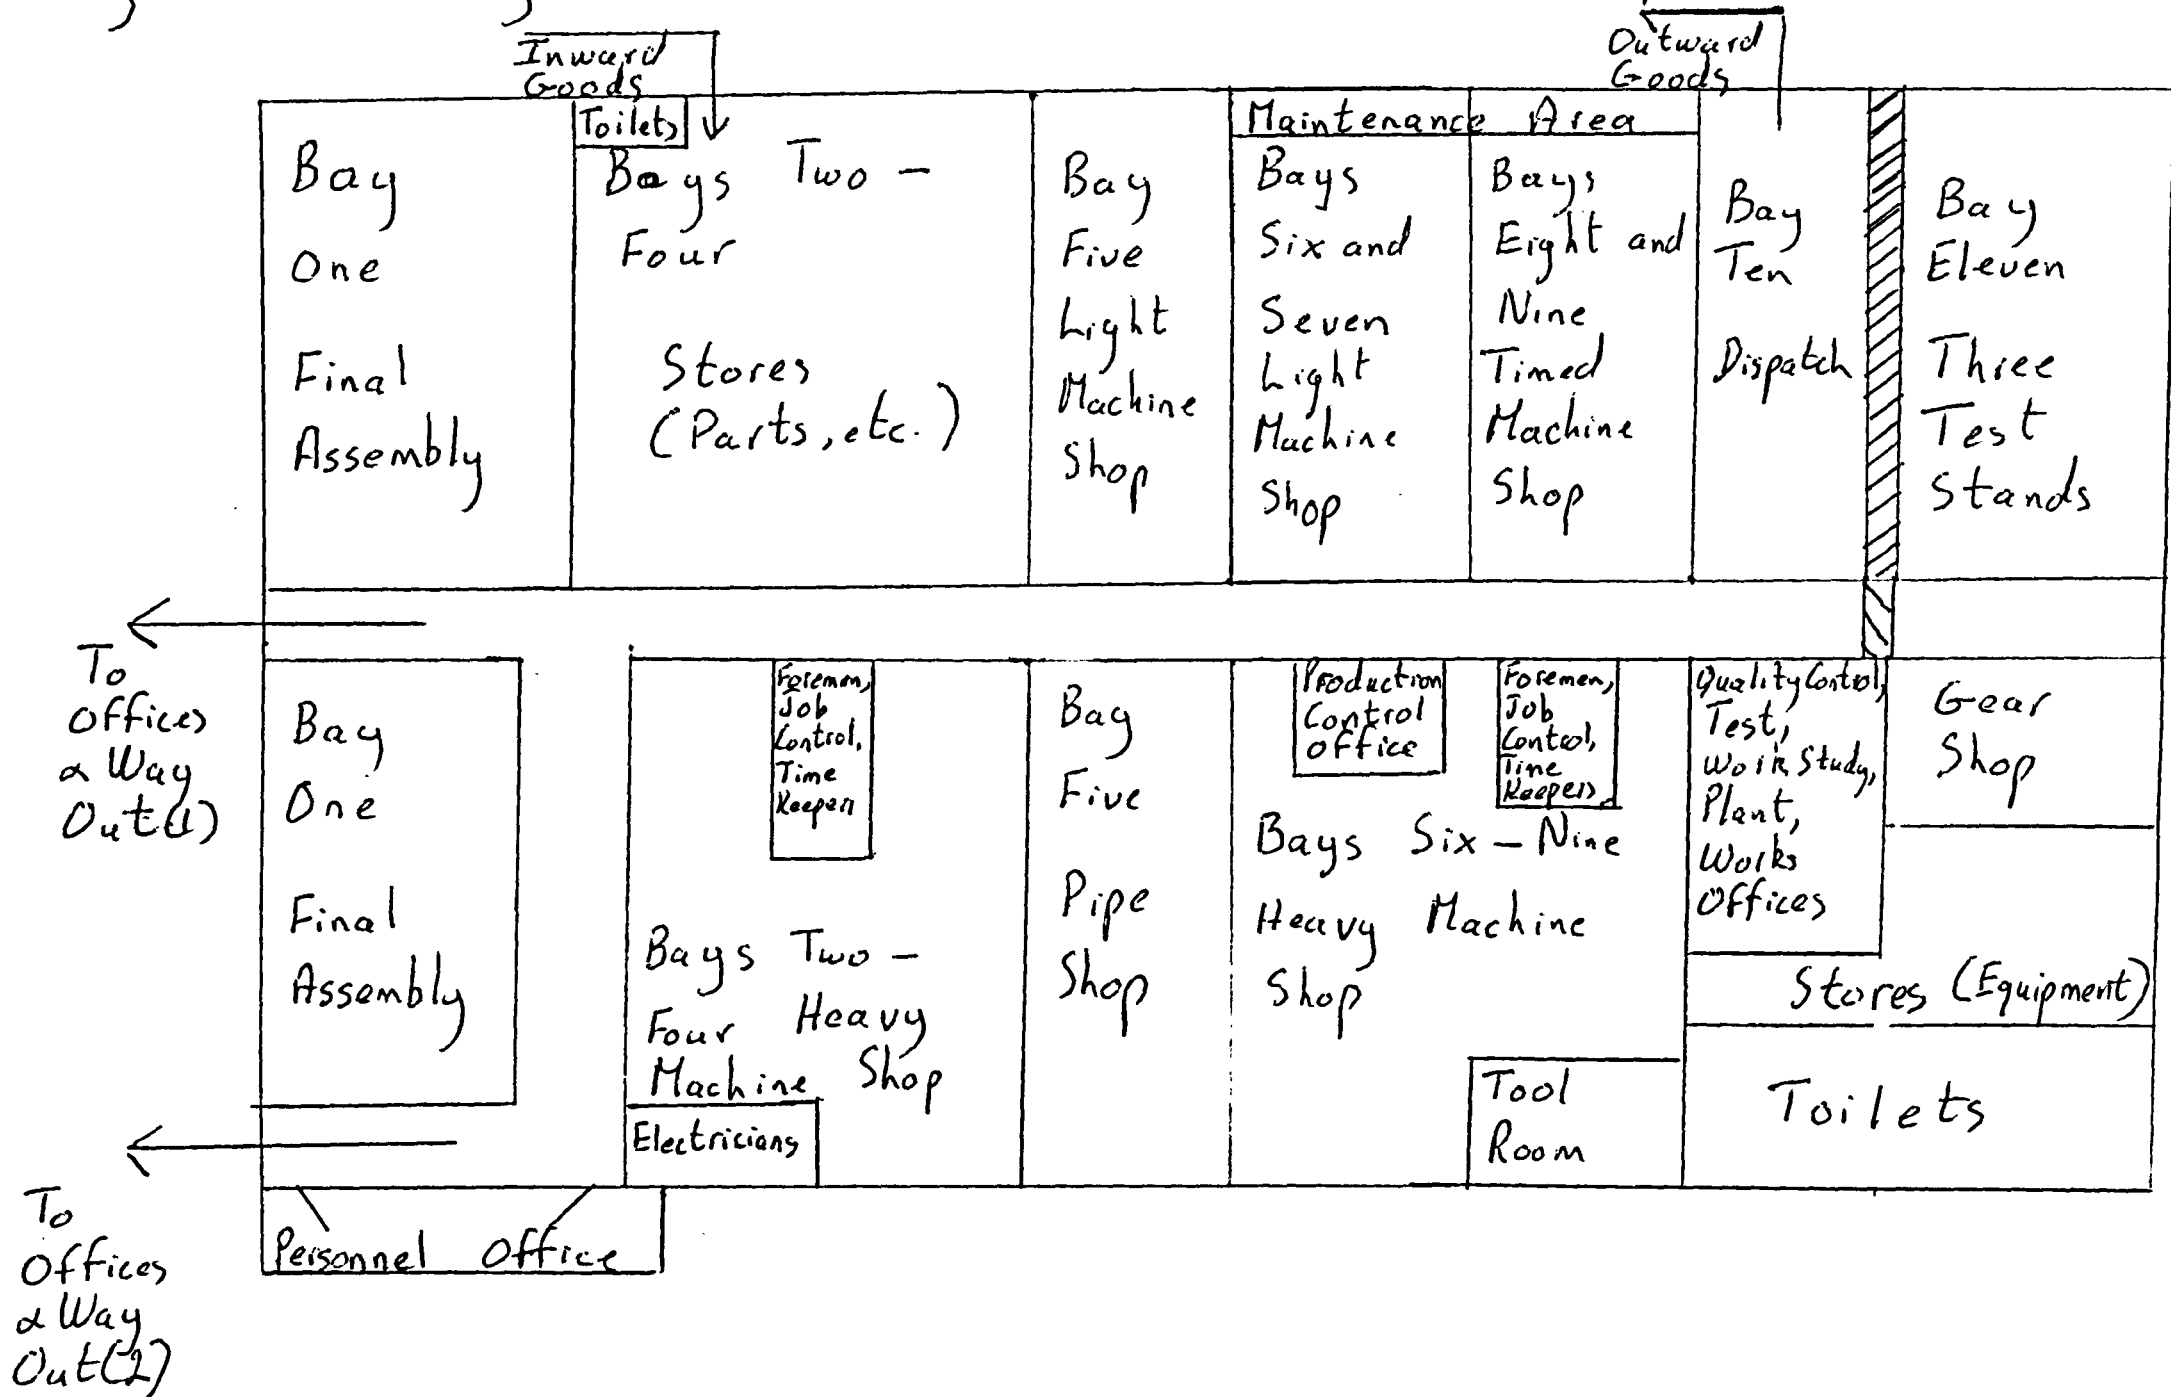 Inward
Goods
Outward
Goods
Toilets
Maintenance Area
Bay
One
Final
Assembly
Bays Two -
Four
Stores
(Parts, etc.)
Bay
Five
Light
Machine
Shop
Bays
Six and
Seven
Light
Machine
Shop
Bays
Eight and
Nine
Timed
Machine
Shop
Bay
Ten
Dispatch
Bay
Eleven
Three
Test
Stands
To
Offices
& Way
Out(1)
Bay
One
Final
Assembly
Foremen,
Job
Control,
Time
Keepers
Bays Two -
Four Heavy
Machine Shop
Electricians
Bay
Five
Pipe
Shop
Production
Control
Office
Foremen,
Job
Control,
Time
Keepers
Bays Six - Nine
Heavy Machine
Shop
Tool
Room
Quality Control,
Test,
Work Study,
Plant,
Works
Offices
Gear
Shop
Stores (Equipment)
Toilets
To
Offices
& Way
Out(2)
Personnel Office